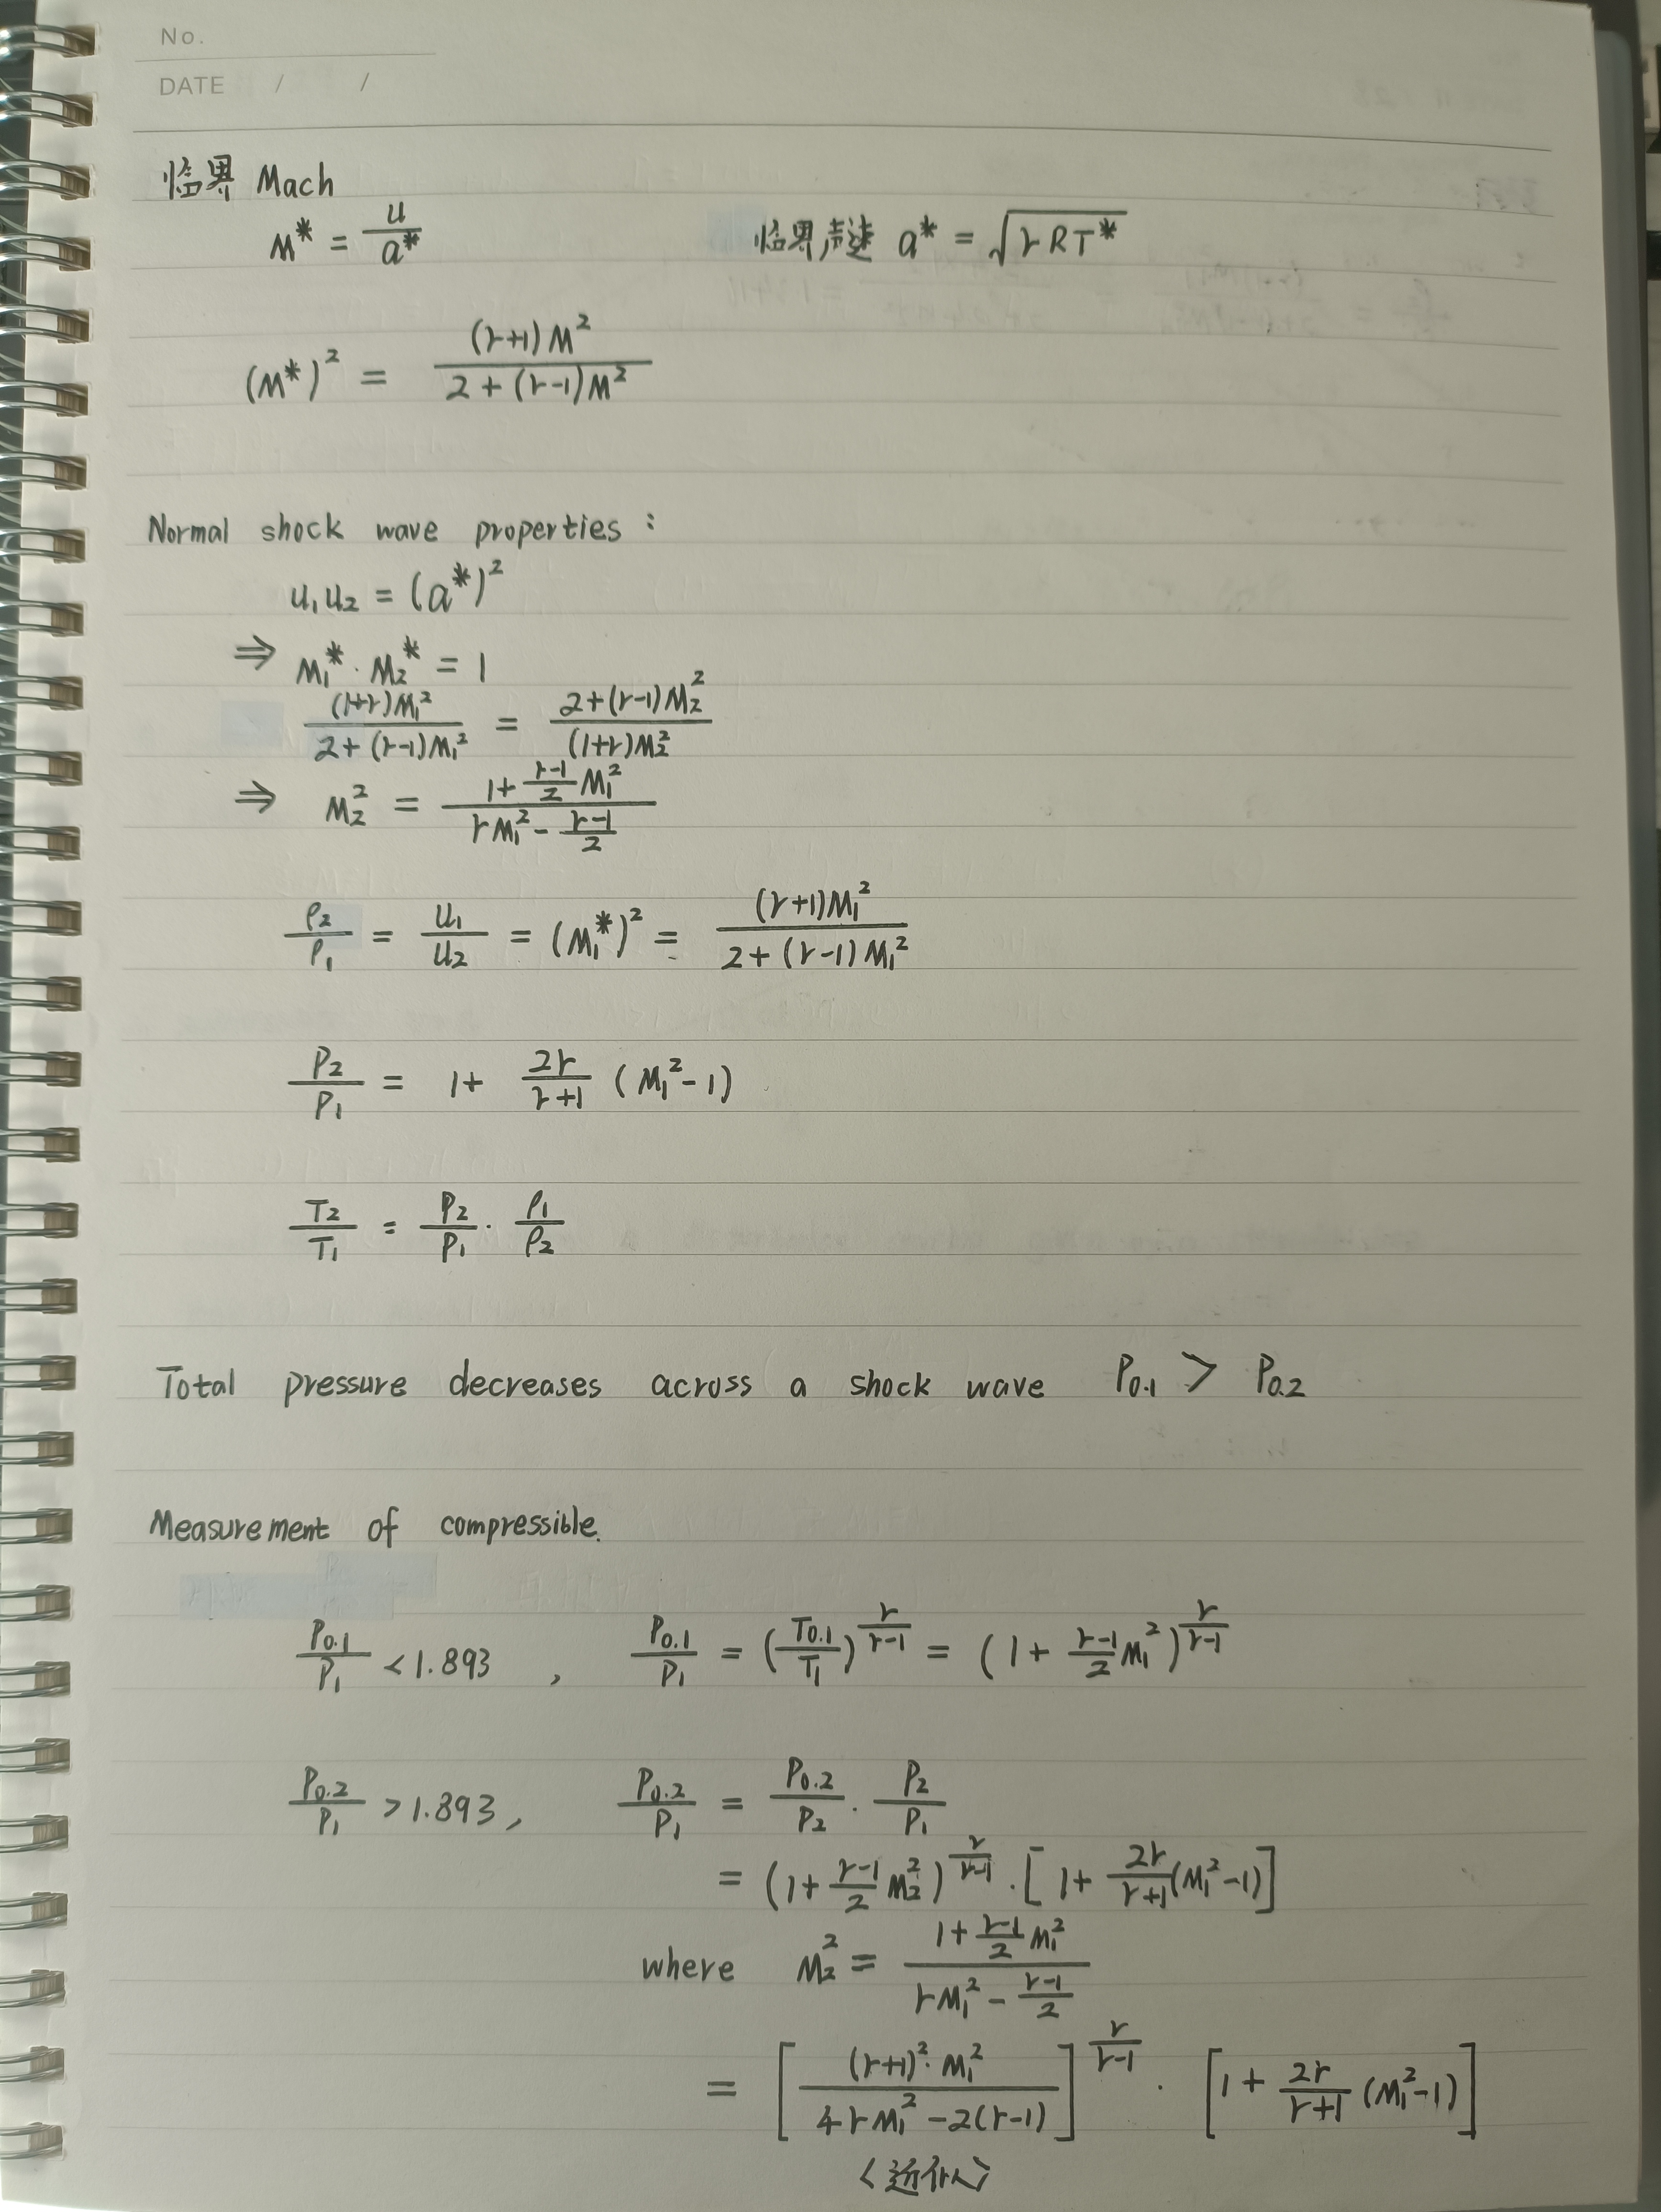 No.
DATE / /
临界 Mach
M* = u/a* 临界声速 a* = √(γRT*)
(M*)² = (γ+1)M² / (2+(γ-1)M²)
Normal shock wave properties:
u₁u₂ = (a*)²
⇒ M₁*·M₂* = 1
(1+γ)M₁² / (2+(γ-1)M₁²) = (2+(γ-1)M₂²) / ((1+γ)M₂²)
⇒ M₂² = (1+(γ-1)/2 M₁²) / (γM₁² - (γ-1)/2)
ρ₂/ρ₁ = u₁/u₂ = (M₁*)² = (γ+1)M₁² / (2+(γ-1)M₁²)
P₂/P₁ = 1+ 2γ/(γ+1) (M₁²-1)
T₂/T₁ = P₂/P₁ · ρ₁/ρ₂
Total pressure decreases across a shock wave P₀.₁ > P₀.₂
Measurement of compressible.
P₀.₁/P₁ < 1.893 , P₀.₁/P₁ = (T₀.₁/T₁)^(γ/(γ-1)) = (1+ (γ-1)/2 M₁²)^(γ/(γ-1))
P₀.₂/P₁ > 1.893 , P₀.₂/P₁ = P₀.₂/P₂ · P₂/P₁
= (1+ (γ-1)/2 M₂²)^(γ/(γ-1)) · [1+ 2γ/(γ+1) (M₁²-1)]
where M₂² = (1+(γ-1)/2 M₁²) / (γM₁² - (γ-1)/2)
= [(γ+1)²·M₁² / (4γM₁² - 2(γ-1))]^(γ/(γ-1)) · [1+ 2γ/(γ+1) (M₁²-1)]
〈近似〉